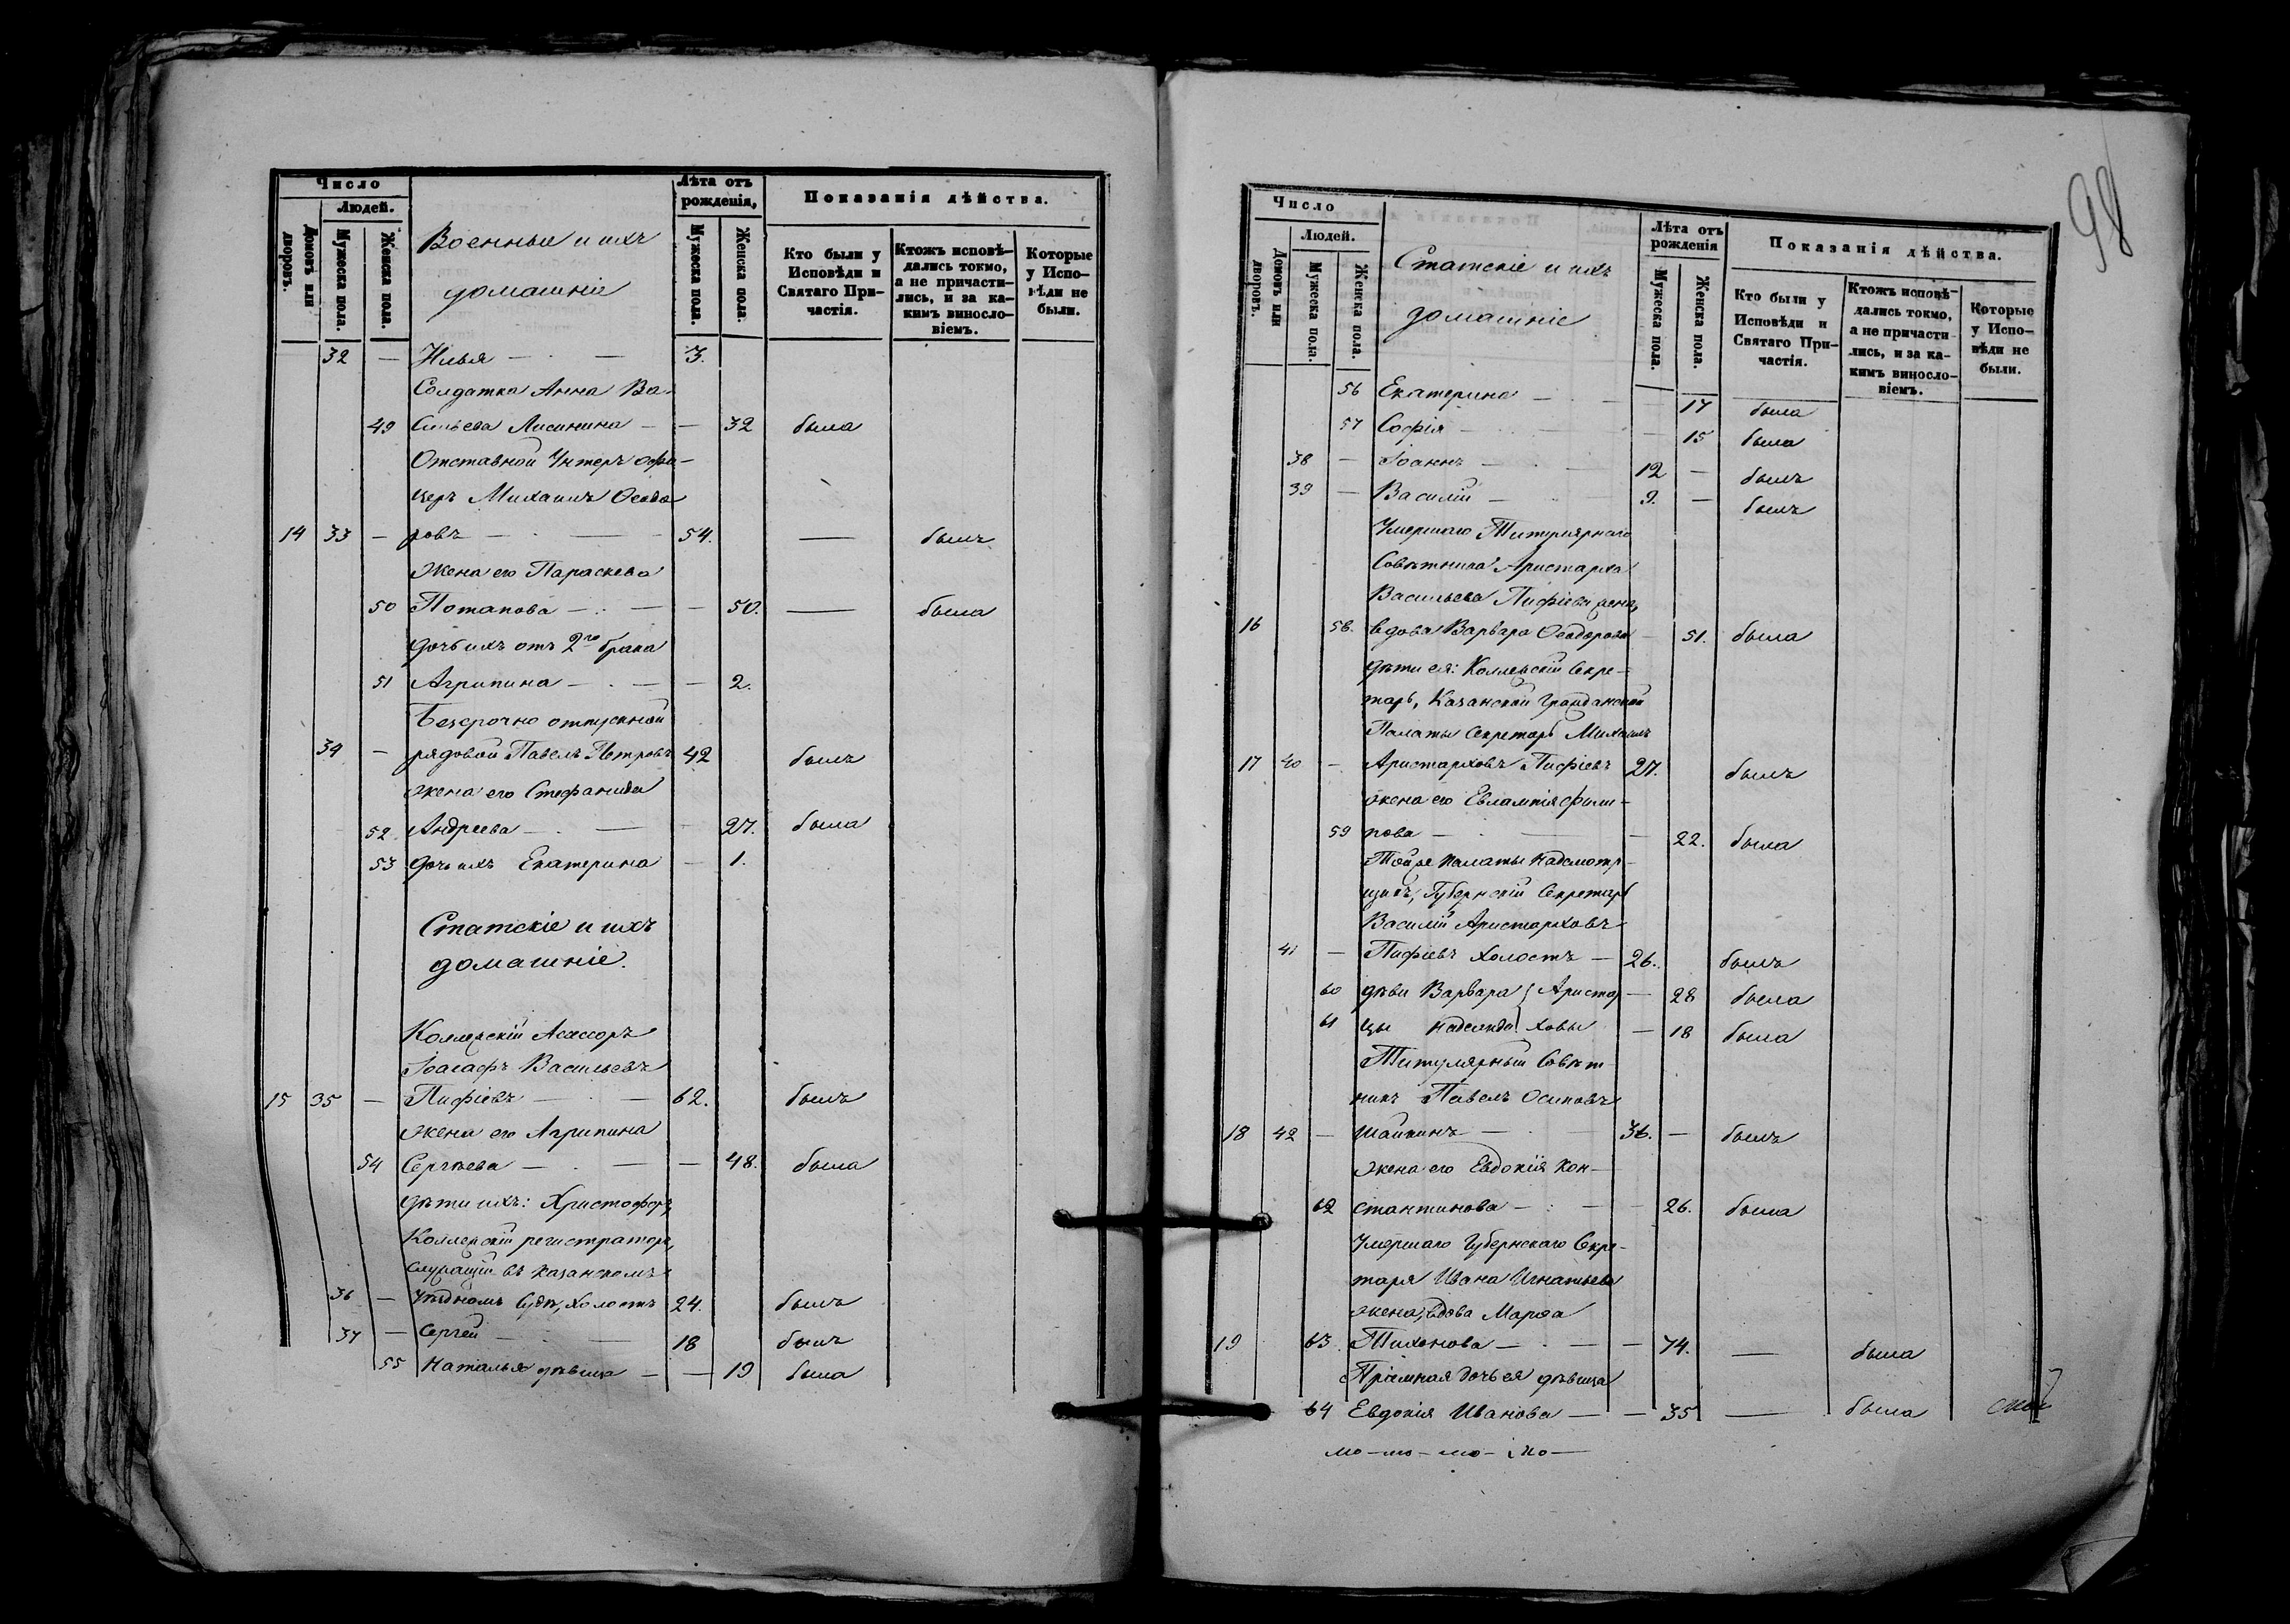 Число
Людей.
Домовъ или дворовъ.
Мужеска пола.
Женска пола.
Военные и ихъ
домашніе
Лѣта отъ
рожденія,
Мужеска пола.
Женска пола.
Показанія дѣйства.
Кто были у
Исповѣди и
Святаго При-
частія.
Ктожъ исповѣ-
дались токмо,
а не причасти-
лись, и за ка-
кимъ виносло-
віемъ.
Которые
у Испо-
вѣди не
были.
32 — Илья — · — 3.
Солдатка Анна Ва-
49 сильева Лисинина — — 32 была
Отставной Унтеръ офи-
церъ Михаилъ Ѳеодо
14 33 — ровъ — · — 54. — былъ
жена его Параскева
50 Потапова — · — — 50. — была
дочь ихъ отъ 2го брака
51 Агрипина — · — — 2.
Безсрочно отпускной
34 — рядовой Павелъ Петровъ 42 былъ
жена его Стефанида
52. Андреева — · — — 27. была
53 дочь ихъ Екатерина — 1.
Статскіе и ихъ
домашніе.
Коллежскій Асессоръ
Іоасафъ Васильевъ
15 35 — Пифіевъ — · — 62. былъ
жена его Агрипина
54 Сергѣева — · — — 48. была
дѣти ихъ: Христофоръ,
Коллежскій регистраторъ,
служащій въ Казанскомъ
36 — Уѣздномъ Судѣ, холостъ 24. былъ
37 — Сергѣй — · — 18 былъ
55 Наталья дѣвица — — 19 была
98
Число
Людей.
Домовъ или дворовъ.
Мужеска пола.
Женска пола.
Статскіе и ихъ
домашніе
Лѣта отъ
рожденія
Мужеска пола.
Женска пола.
Показанія дѣйства.
Кто были у
Исповѣди и
Святаго При-
частія.
Ктожъ исповѣ-
дались токмо,
а не причасти
лись, и за ка-
кимъ виносло-
віемъ.
Которые
у Испо-
вѣди не
были.
56 Екатерина — · — 17 была
57 Софія — · — — 15 была
38 — Іоаннъ — · — 12 — былъ
39 — Василій — · — 9. — былъ
Умершаго Титулярнаго
Совѣтника Аристарха
Васильева Пифіева жена,
16 58. вдова Варвара Ѳеодорова — 51. была
дѣти ея: Коллежскій Секре-
тарь, Казанской Гражданской
Палаты Секретарь Михаилъ
17 40 — Аристарховъ Пифіевъ 27. былъ
жена его Евлампія Фили-
59 пова — · — — 22. была
Тойже палаты Надсмотр-
щикъ, Губернскій Секретарь
Василій Аристарховъ
41 — Пифіевъ холостъ — 26. былъ
60 дѣви Варвара } Аристар — 28 была
61 цы Надежда } ховы — 18 была
Титулярный Совѣт-
никъ Павелъ Осиповъ
18 42 — Шайкинъ — · — 36. — былъ
жена его Евдокія Кон-
62 стантинова — · — — 26. была
Умершаго Губернскаго Секре-
таря Ивана Игнатьева
жена, вдова Марѳа
19 63. Тихонова — · — — 74. — была
Пріемная дочь ея дѣвица
64 Евдокія Иванова — — 35 — была